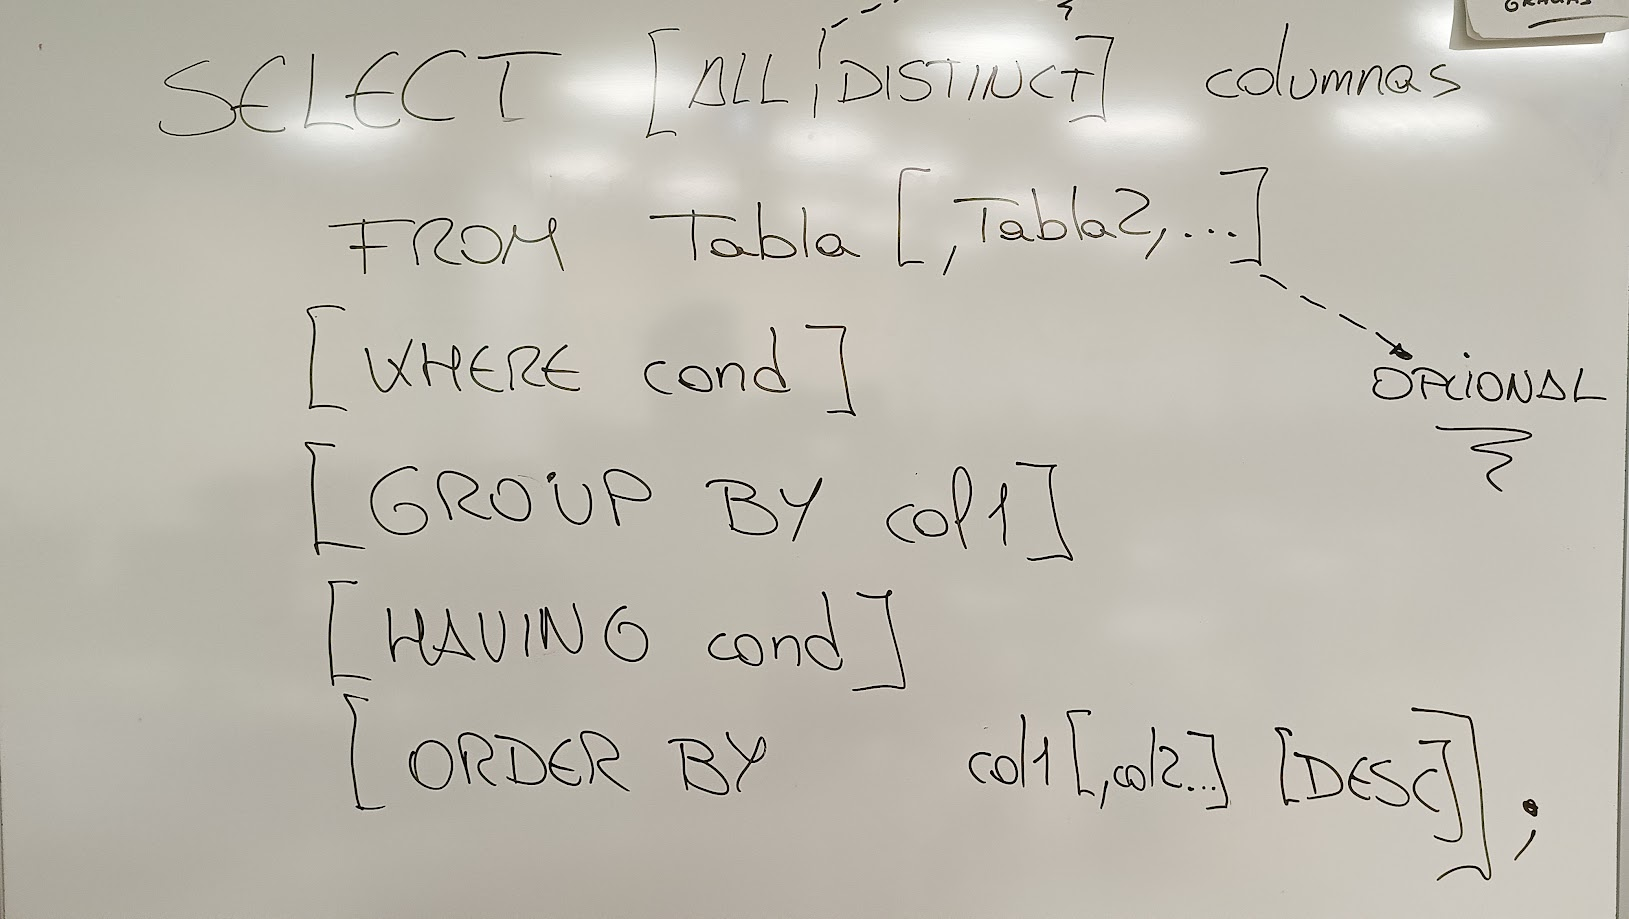 GRACIAS
SELECT [ALL | DISTINCT] columnas
FROM Tabla [, Tabla2, ...]
[WHERE cond]
OPCIONAL
[GROUP BY col1]
[HAVING cond]
[ORDER BY col1 [,col2...] [DESC]];